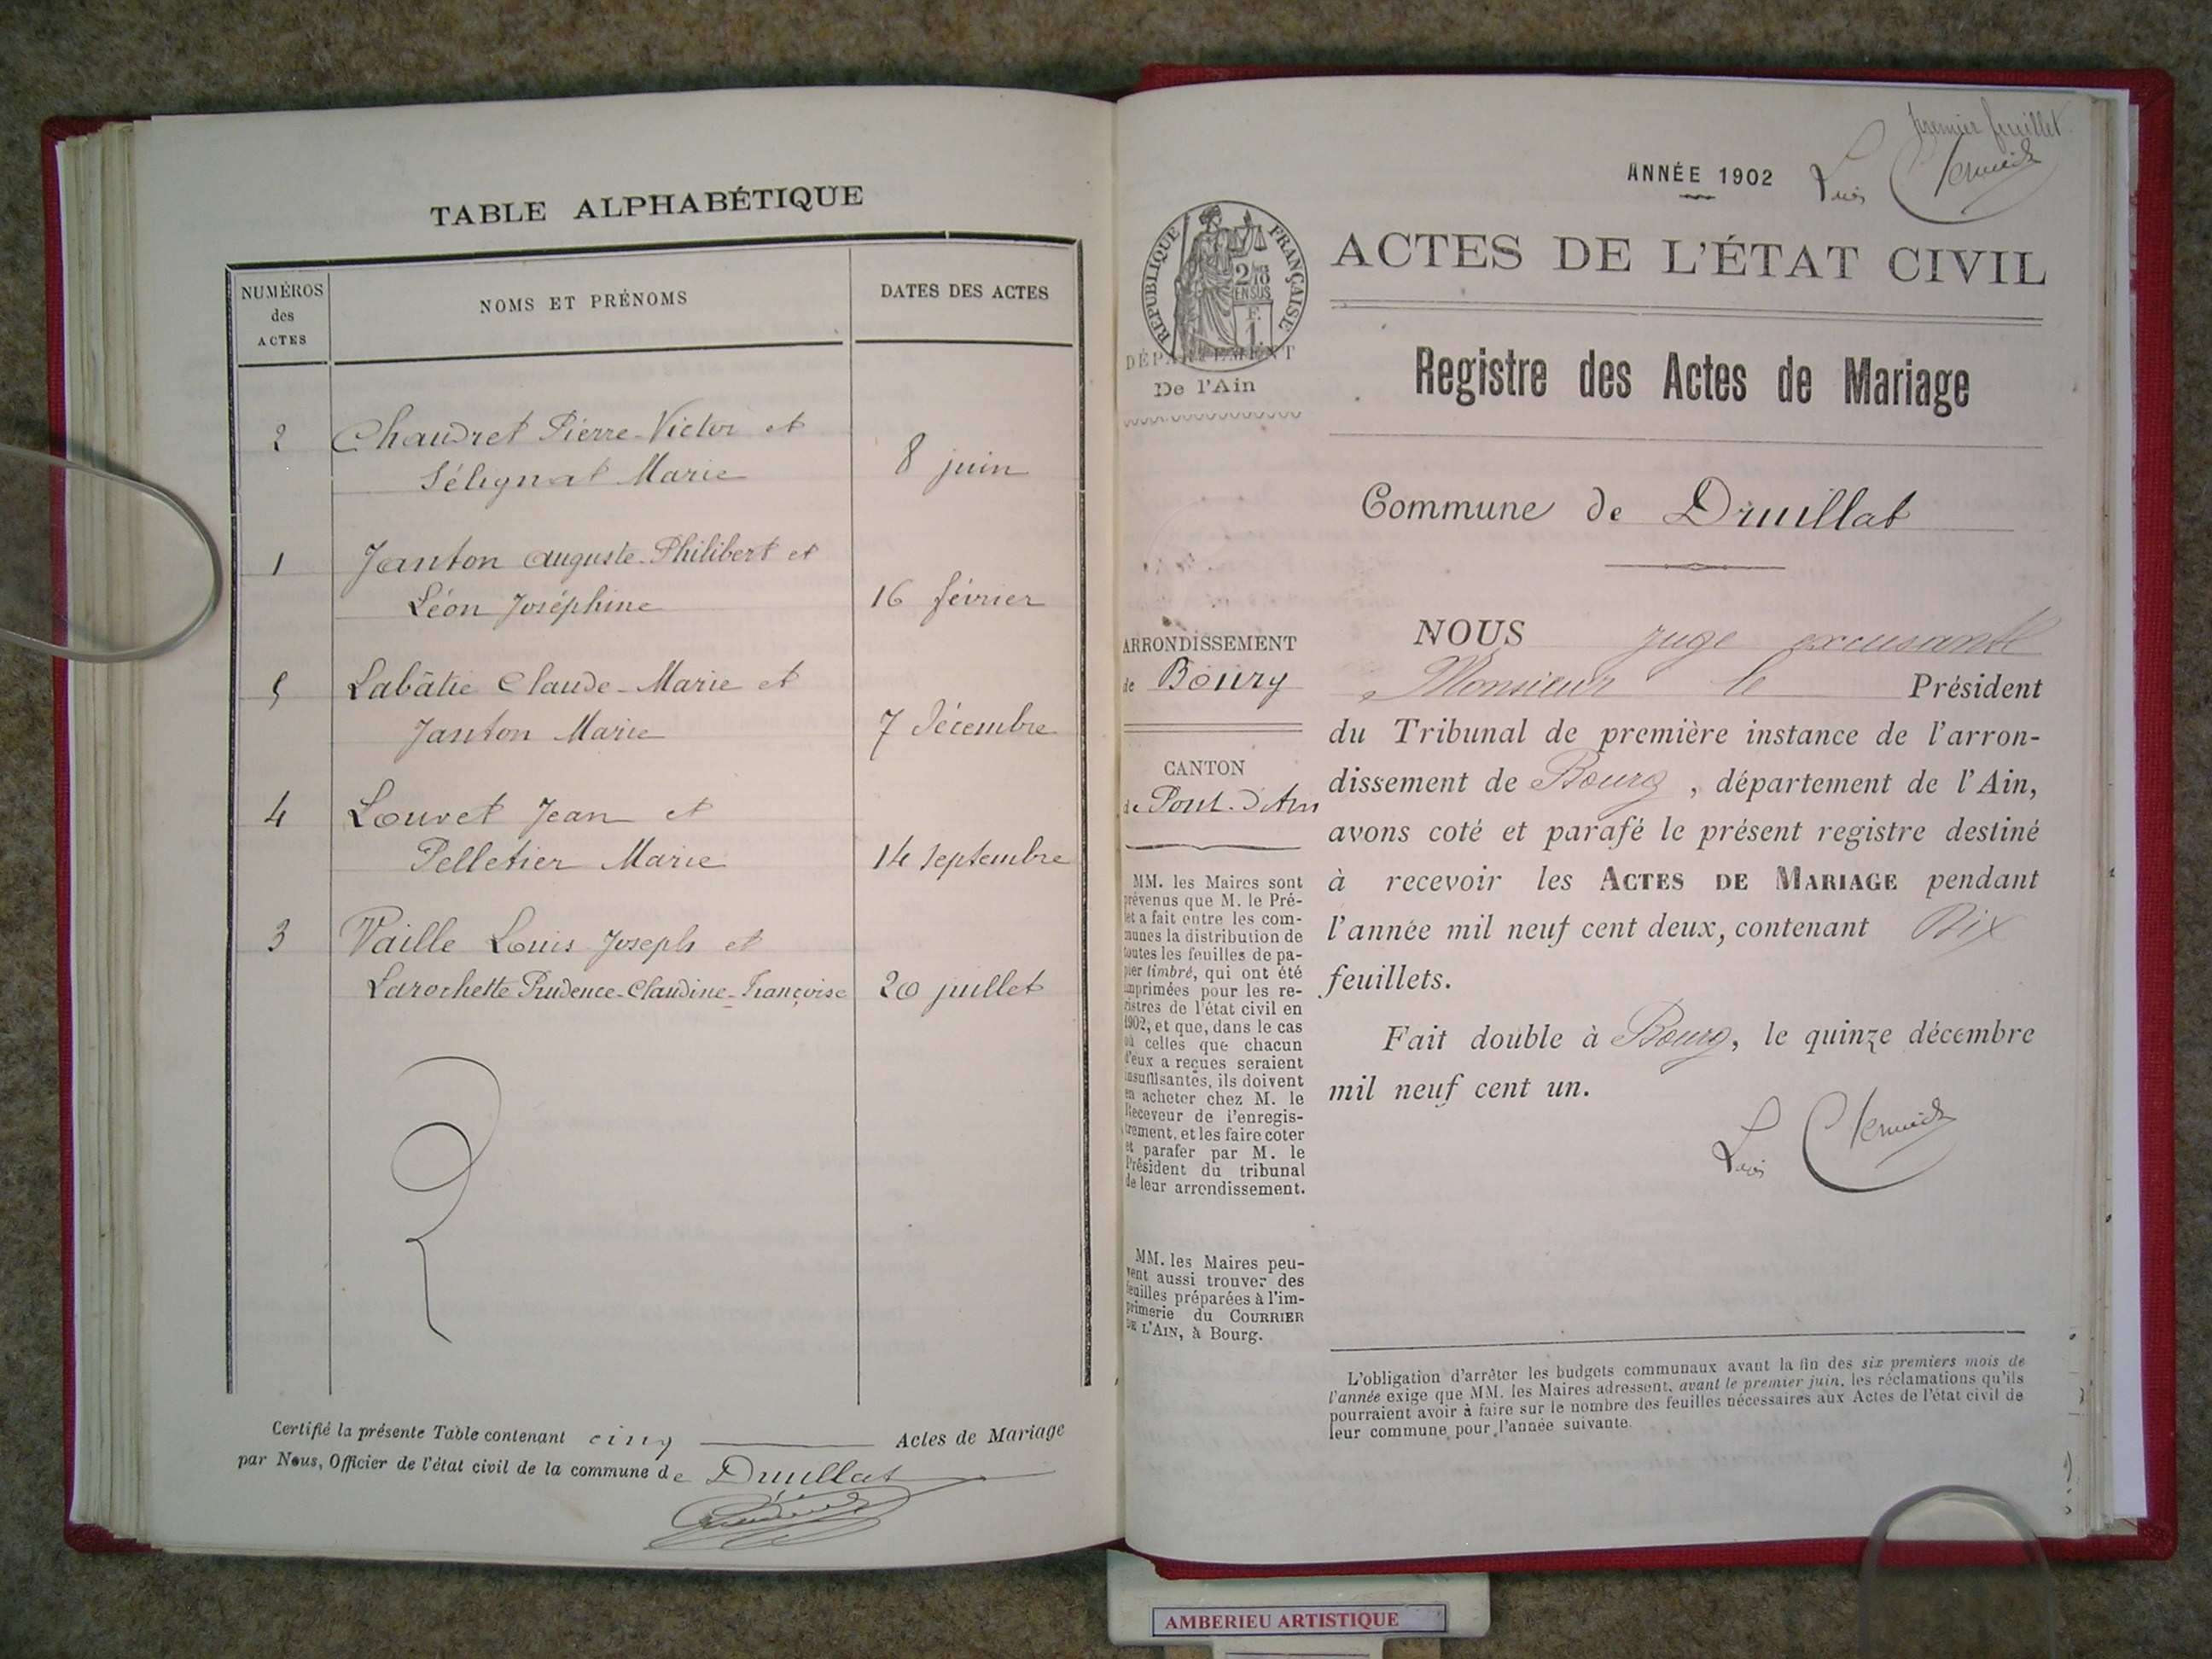 TABLE ALPHABÉTIQUE
NUMÉROS
des
ACTES
NOMS ET PRÉNOMS
DATES DES ACTES
2 Chaudret Pierre-Victor et
Sélignat Marie 8 juin
1 Janton Auguste-Philibert et
Léon Joséphine 16 février
5 Labâtie Claude-Marie et
Janton Marie 7 Décembre
4 Louvet Jean et
Pelletier Marie 14 Septembre
3 Vaille Louis Joseph et
Larochette Prudence-Claudine-Françoise 20 juillet
Certifié la présente Table contenant cinq Actes de Mariage
par Nous, Officier de l'état civil de la commune de Druillat
premier feuillet
ANNÉE 1902
RÉPUBLIQUE FRANÇAISE
2/10
EN SUS
F.
1
DÉPARTEMENT
De l'Ain
ARRONDISSEMENT
de Bourg
CANTON
de Pont-d'Ain
MM. les Maires sont
prévenus que M. le Pré-
fet a fait entre les com-
munes la distribution de
toutes les feuilles de pa-
pier timbré, qui ont été
imprimées pour les re-
gistres de l'état civil en
1902, et que, dans le cas
où celles que chacun
d'eux a reçues seraient
insuffisantes, ils doivent
en acheter chez M. le
Receveur de l'enregis-
trement, et les faire coter
et parafer par M. le
Président du tribunal
de leur arrondissement.
MM. les Maires peu-
vent aussi trouver des
feuilles préparées à l'im-
primerie du COURRIER
DE L'AIN, à Bourg.
ACTES DE L'ÉTAT CIVIL
Registre des Actes de Mariage
Commune de Druillat
NOUS juge
Monsieur le Président
du Tribunal de première instance de l'arron-
dissement de Bourg, département de l'Ain,
avons coté et parafé le présent registre destiné
à recevoir les ACTES DE MARIAGE pendant
l'année mil neuf cent deux, contenant
feuillets.
Fait double à Bourg, le quinze décembre
mil neuf cent un.
L'obligation d'arrêter les budgets communaux avant la fin des six premiers mois de
l'année exige que MM. les Maires adressent, avant le premier juin, les réclamations qu'ils
pourraient avoir à faire sur le nombre des feuilles nécessaires aux Actes de l'état civil de
leur commune pour l'année suivante.
AMBERIEU ARTISTIQUE